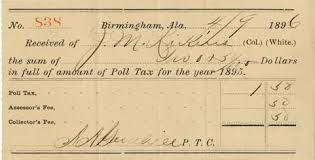 No. 838 Birmingham, Ala. 4/9 1896
Received of J. M. (Col.) (White.)
the sum of Two + 50/100 Dollars
in full of amount of Poll Tax for the year 1895.
Poll Tax, 1 50
Assessor's Fee, 50
Collector's Fee, 50
P. T. C.